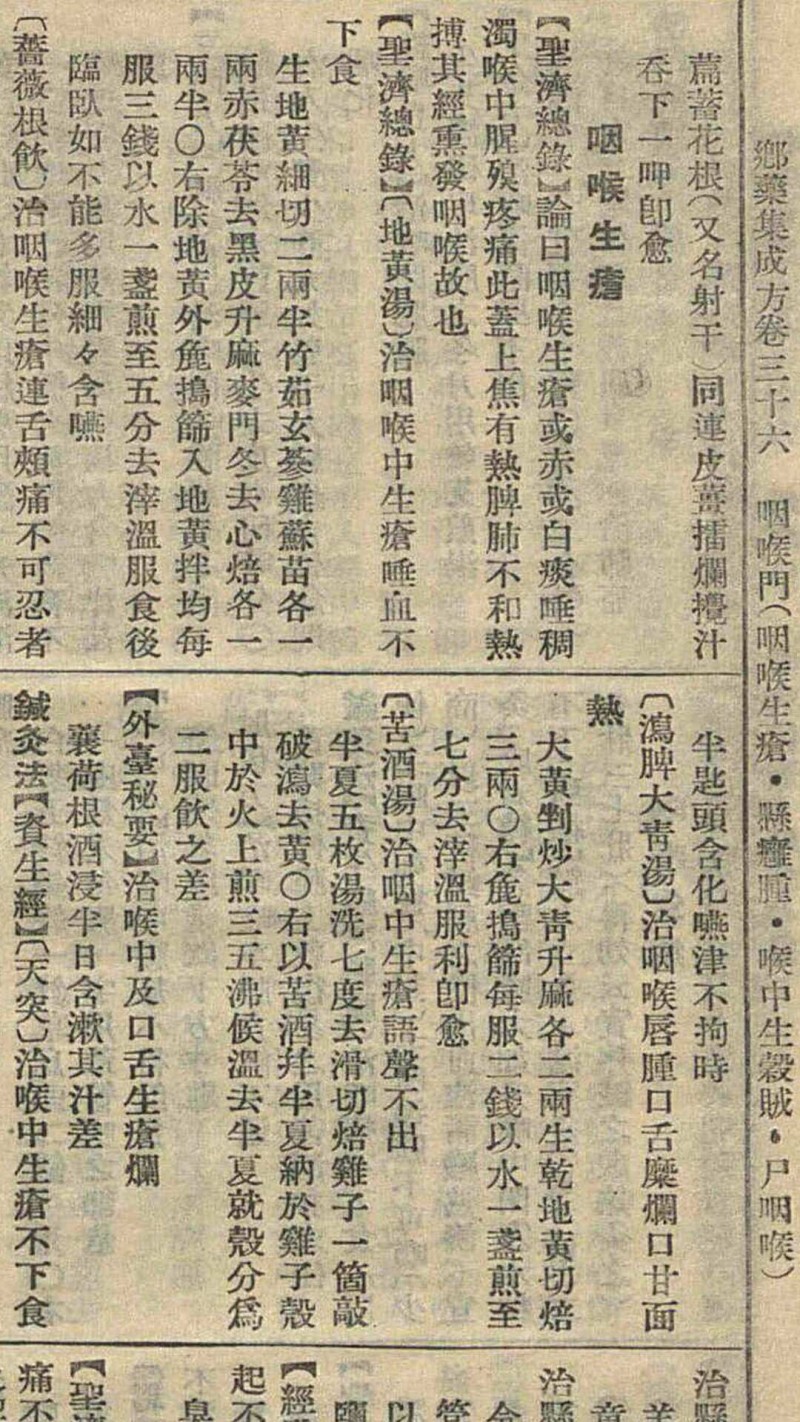 鄕藥集成方卷三十六 咽喉門(咽喉生瘡·懸癰腫·喉中生穀賊·尸咽喉)
萹蓄花根(又名射干)同連皮薑擂爛攪汁
呑下一呷卽愈
咽喉生瘡
【聖濟總錄】論曰咽喉生瘡或赤或白痰唾稠
濁喉中腥殠疼痛此蓋上焦有熱脾肺不和熱
搏其經熏發咽喉故也
【聖濟總錄】〔地黃湯〕治咽喉中生瘡唾血不
下食
生地黃細切二兩半竹茹玄蔘雞蘇苗各一
兩赤茯苓去黑皮升麻麥門冬去心焙各一
兩半〇右除地黃外麁搗篩入地黃拌均每
服三錢以水一盞煎至五分去滓溫服食後
臨臥如不能多服細々含嚥
〔薔薇根飮〕治咽喉生瘡連舌頰痛不可忍者
半匙頭含化嚥津不拘時
〔瀉脾大靑湯〕治咽喉唇腫口舌糜爛口甘面
熱
大黃剉炒大靑升麻各二兩生乾地黃切焙
三兩〇右麁搗篩每服二錢以水一盞煎至
七分去滓溫服利卽愈
〔苦酒湯〕治咽中生瘡語聲不出
半夏五枚湯洗七度去滑切焙雞子一箇敲
破瀉去黃〇右以苦酒幷半夏納於雞子殼
中於火上煎三五沸候溫去半夏就殼分爲
二服飮之差
【外臺秘要】治喉中及口舌生瘡爛
蘘荷根酒浸半日含漱其汁差
鍼灸法【資生經】〔天突〕治喉中生瘡不下食
治懸
治懸
以
【經
起不
【聖濟
痛不